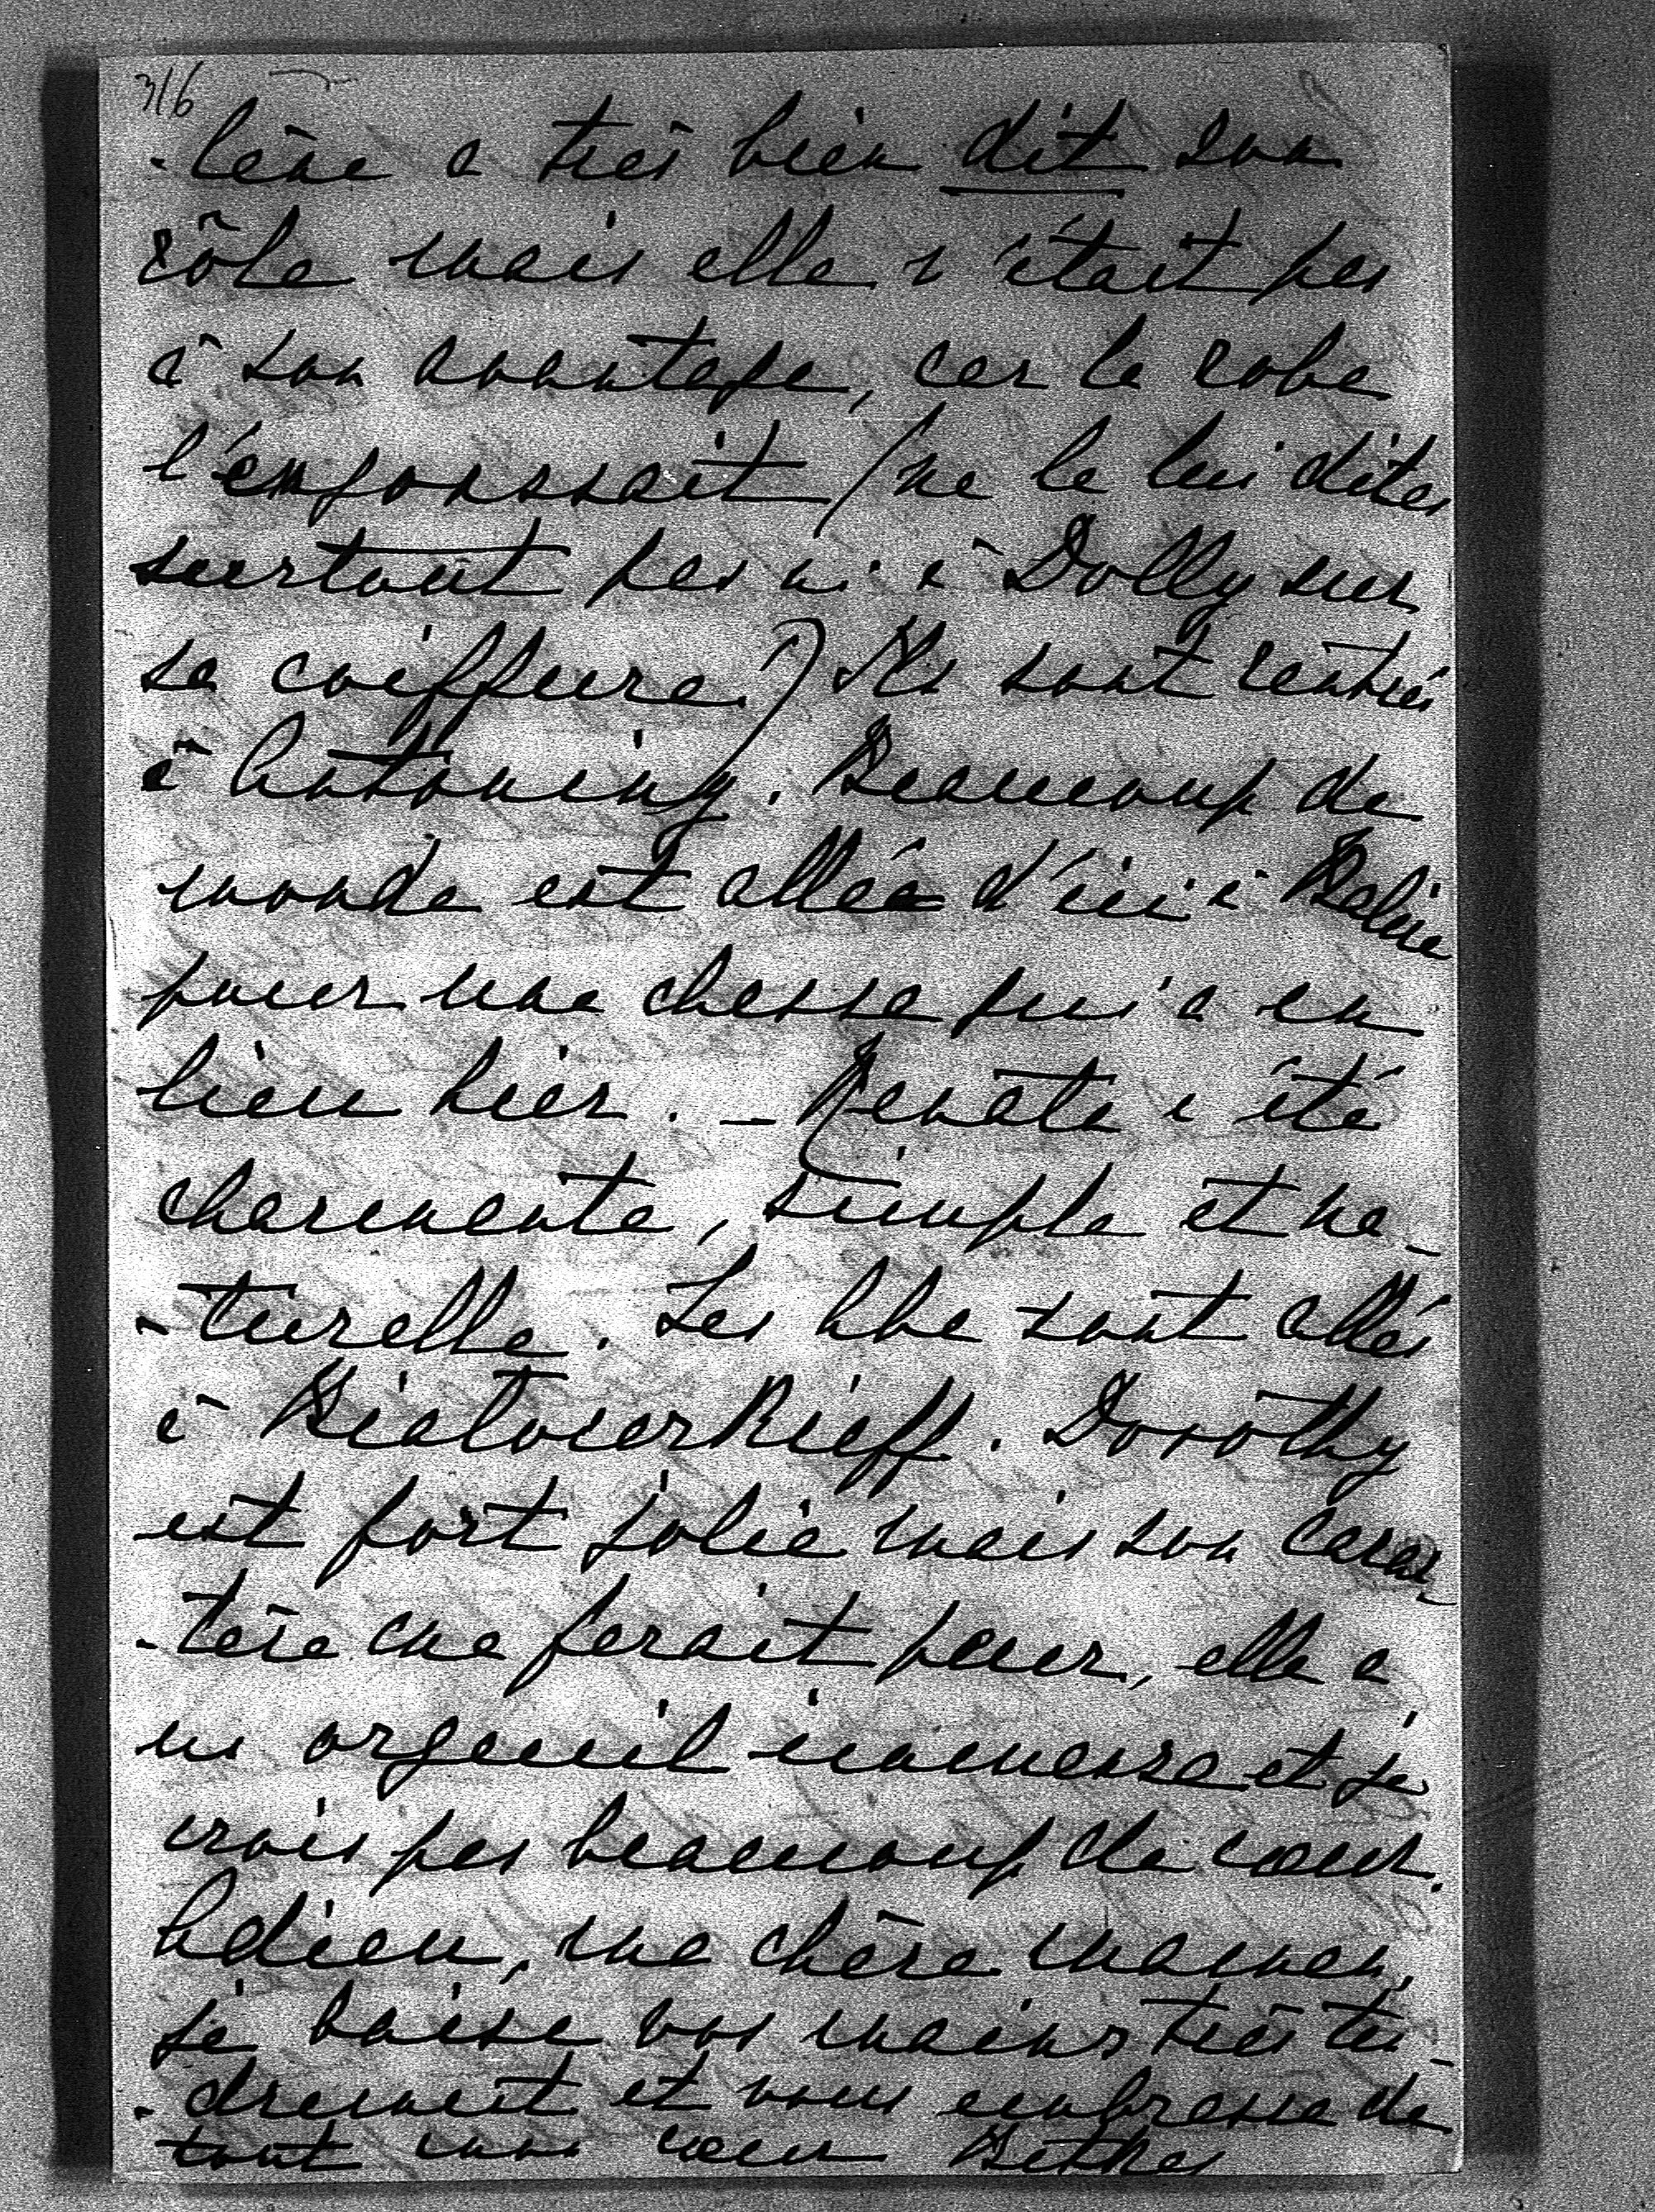 316
-lène a très bien dit son
rôle mais elle n'était pas
à son avantage, car la robe
l'engonssait (ne le lui dites
surtout pas ni à Dolly sur
sa coiffure.) Ils sont rentrés
à Antoniny. Beaucoup de
monde est allée d'ici à Balice
pour une chasse qui a eu
lieu hier. - Renata a été
charmante, simple et na-
-turelle. Les Abe sont allés
à Bialocerkieff. Dorothy
est fort jolie mais son carac-
-tère me ferait peur, elle a
un orgueil immense et je
crois pas beaucoup de cœur.
Adieu, ma chère maman,
je baise vos mains très ten-
-drement et vous embrasse de
tout mon cœur Bethes